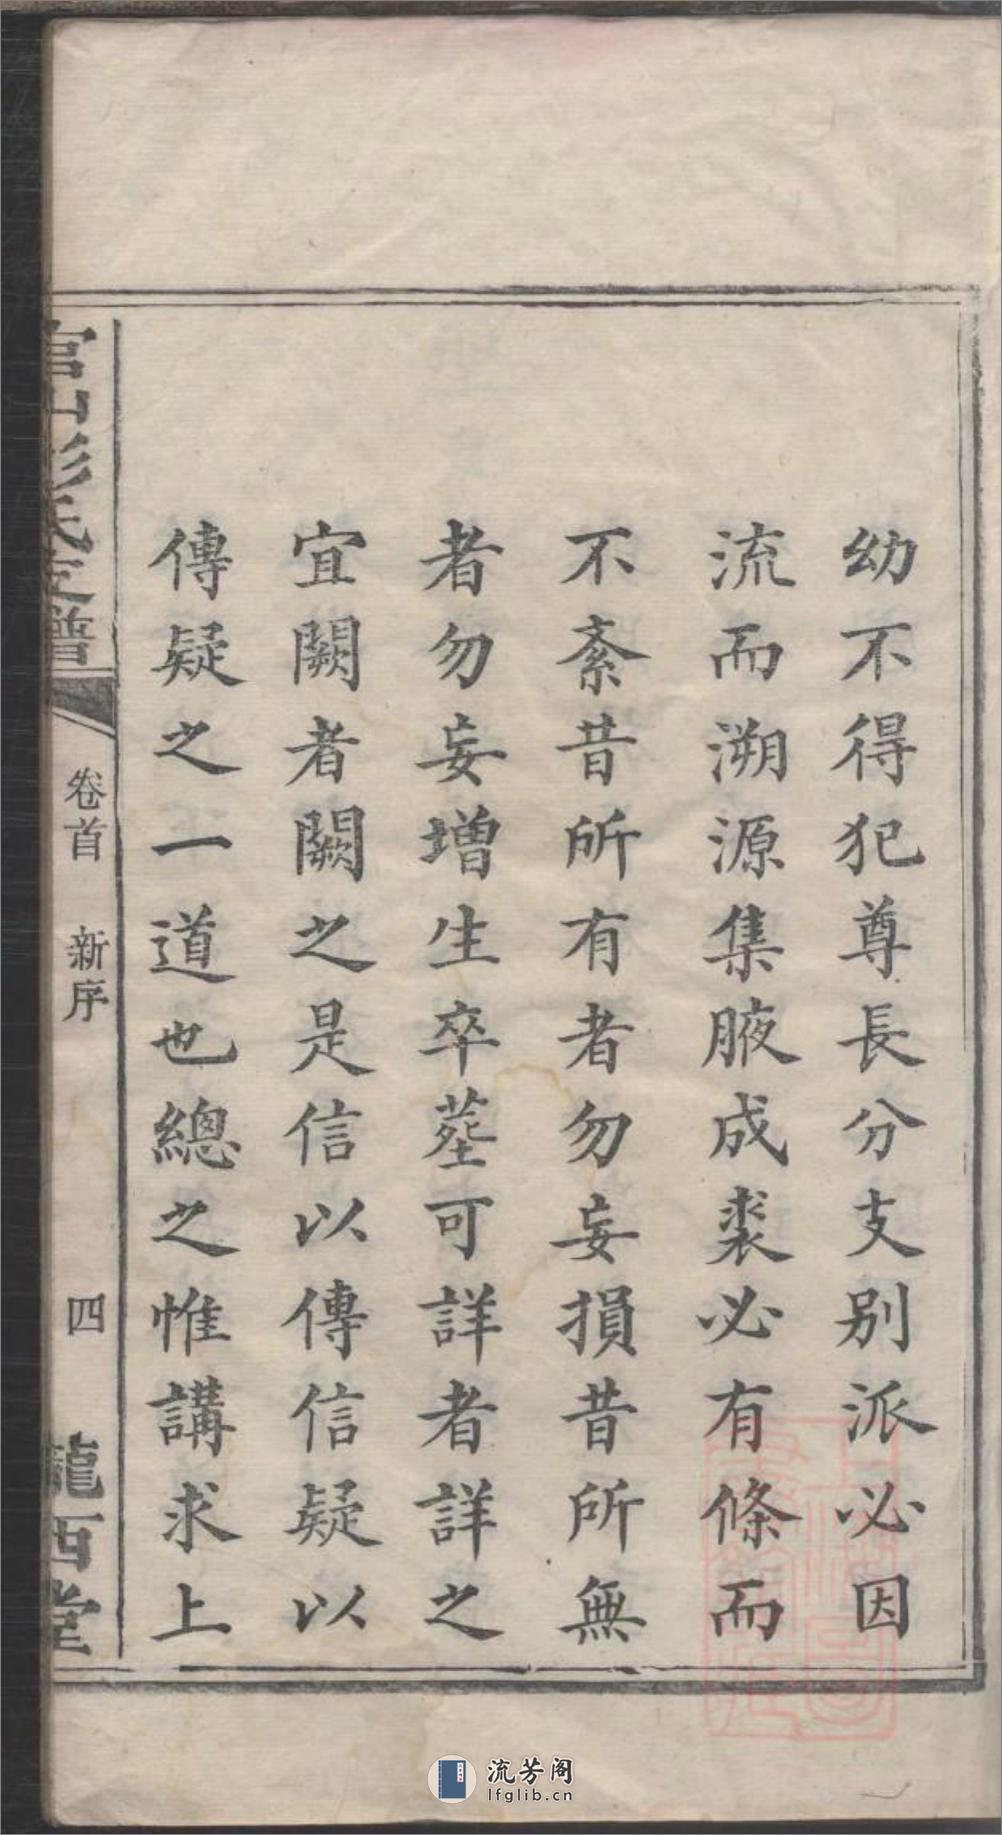 幼不得犯尊長分支別派必因
流而溯源集腋成裘必有條而
不紊昔所有者勿妄損昔所無
者勿妄增生卒塟可詳者詳之
宜闕者闕之是信以傳信疑以
傳疑之一道也總之惟講求上
官山彭氏支譜
卷首
新序
四
隴西堂
流芳阁
lfglib.cn